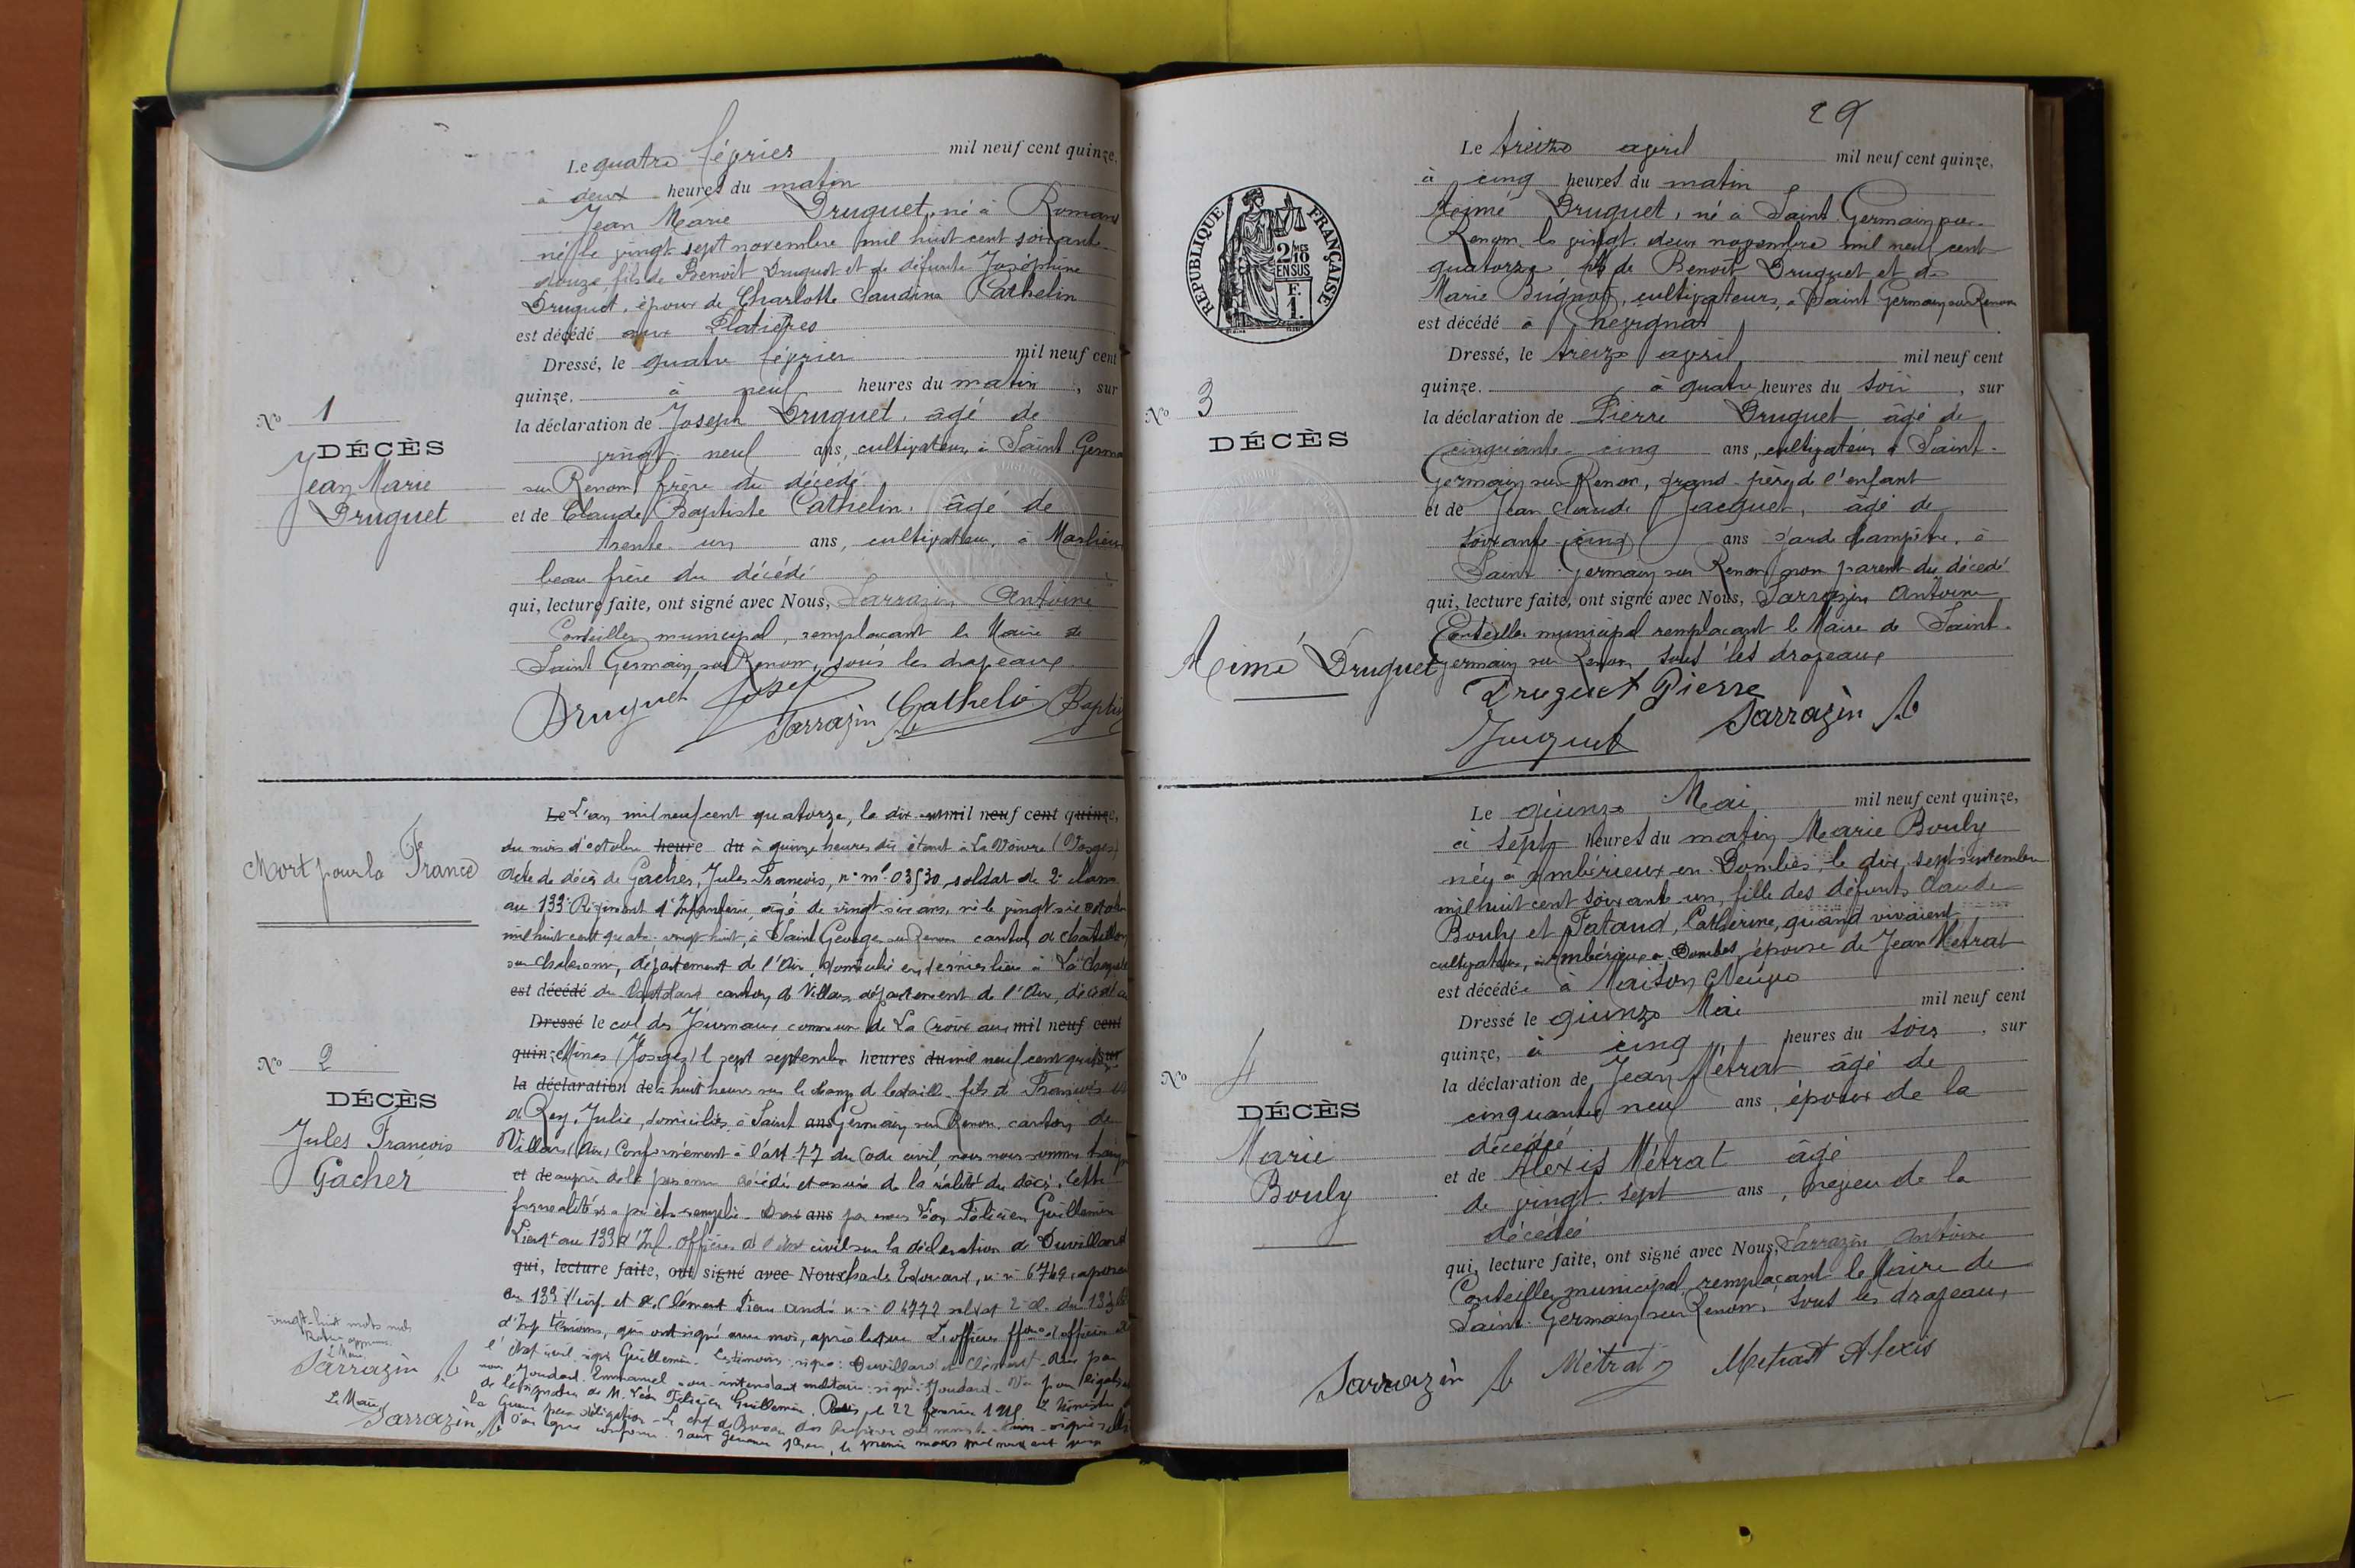 Le quatre février mil neuf cent quinze,
à deux heures du matin
Jean Marie Druguet, né à Romans
né le vingt sept novembre mil huit cent soixante
douze fils de Benoît Druguet et de défunte Joséphine
Druguet, époux de Charlotte Claudine Cathelin
est décédé aux Platières
Dressé, le quatre février mil neuf cent
quinze, à neuf heures du matin, sur
la déclaration de Joseph Druguet, âgé de
vingt neuf ans, cultivateur, à Saint Germa
sur Renom frère du décédé
et de Claude Baptiste Cathelin, âgé de
trente un ans, cultivateur, à Marlieu
beau frère du décédé
qui, lecture faite, ont signé avec Nous, Sarrazin Antoine
Conseiller municipal, remplaçant le Maire de
Saint Germain sur Renom, sous les drapeaux.
Druguet Josep Sarrazin A Cathelin Baptis
No 1
DÉCÈS
Jean Marie
Druguet
Mort pour la France
No 2
DÉCÈS
Jules François
Gacher
Le L'an mil neuf cent quatorze, le dix mil neuf cent quinze,
du mois d'octobre heure du à quinze heures dix étant à La Voivre (Vosges)
Acte de décès de Gacher, Jules François, n° ml 03530, soldat de 2e classe
au 133e Régiment d'Infanterie, âgé de vingt six ans, né le vingt six octobre
mil huit cent quatre-vingt huit, à Saint George sur Renom canton de Chatillon
sur Chalaronne, département de l'Ain, domicilié en dernier lieu à La Chapelle
est décédé du Chatelard canton de Villars département de l'Ain, décédé au
Dressé le col des Journaux commune de La Croix aux mil neuf cent
quinze Mines (Vosges) le sept septembre heures du mil neuf cent quatorze sur
la déclaration de à huit heures sur le champ de bataille, fils de François et
de Rey, Julie, domiciliés à Saint ans Germain sur Renom, canton de
Villars (Ain) Conformément à l'art 77 du Code civil, nous nous sommes transp
et de auprès de la personne décédée et assuré de la réalité du décès. Cette
formalité n'a pu être remplie. Dressé ans par nous Léon Félicien Guillemin
Lient au 133 d'Inf. officier de l'état civil sur la déclaration de Duvillard
qui, lecture faite, ont signé avec Nous Charles Edouard, n° m 6749, caporal
au 133 d'inf. et de Clément Jean André n° m 04772 soldat 2e cl. du 133e
d'Inf témoins, qui ont signé avec moi, après lecture L'officier ffons d'officier de
l'état civil signé Guillemin. Les témoins signé: Duvillard et Clément. Vu par
nous Joudard Emmanuel sous-intendant militaire signé: Joudard. Vu pour légalis
de la signature de M. Léon Félicien Guillemin, Paris, le 22 février 1915 Le Ministre
la Guerre par délégation Le chef de Bureau des Archives
Pour copie conforme Saint Germain s Renom, le premier mars mil neuf cent quinze
vingt-huit mots nuls
Le Maire
Sarrazin A
Le Maire
Sarrazin A
29
RÉPUBLIQUE FRANÇAISE
2/10 MES
EN SUS
F.
1.
Le treize avril mil neuf cent quinze,
à cinq heures du matin
Aimé Druguet, né à Saint Germain sur
Renom, le vingt-deux novembre mil neuf cent
quatorze, fils de Benoît Druguet et de
Marie Buignot, cultivateurs, à Saint Germain sur Renom
est décédé à
Dressé, le treize avril mil neuf cent
quinze. à quatre heures du soir, sur
la déclaration de Pierre Druguet âgé de
cinquante-cinq ans, cultivateur à Saint-
Germain sur Renom, grand-père de l'enfant
et de Jean Claude Jacquet, âgé de
soixante-cinq ans garde champêtre, à
Saint-Germain sur Renom, non parent du décédé
qui, lecture faite, ont signé avec Nous, Sarrazin Antoine
Conseiller municipal remplaçant le Maire de Saint-
Germain sur Renom sous les drapeaux
Druguet Pierre
Sarrazin A
Jacquet
No 3
DÉCÈS
Aimé Druguet
Le quinze Mai mil neuf cent quinze,
à sept heures du matin Marie Bouly
née à Ambérieux-en-Dombes, le dix sept septembre
mil huit cent soixante un, fille des défunts Claude
Bouly et Pataud, Catherine, quand vivaient
cultivateurs, à Ambérieux-en-Dombes, épouse de Jean Métrat
est décédée à Maison Neuve
Dressé le quinze Mai mil neuf cent
quinze, à cinq heures du soir, sur
la déclaration de Jean Métrat âgé de
cinquante neuf ans, époux de la
décédée
et de Alexis Métrat âgé
de vingt-sept ans, neveu de la
décédée
qui, lecture faite, ont signé avec Nous, Sarrazin Antoine
Conseiller municipal, remplaçant le Maire de
Saint-Germain sur Renom, sous les drapeaux,
Sarrazin A Métrat J Metratt Alexis
No 4
DÉCÈS
Marie
Bouly